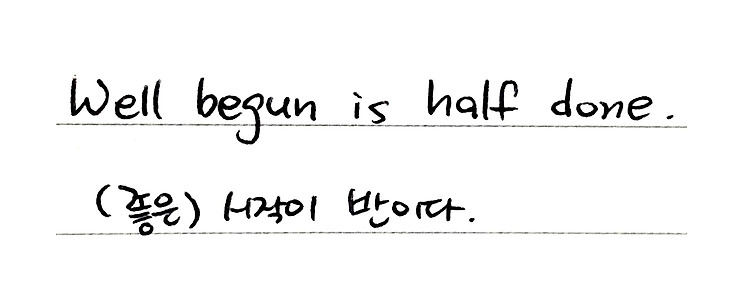 Well begun is half done.
(좋은) 시작이 반이다.